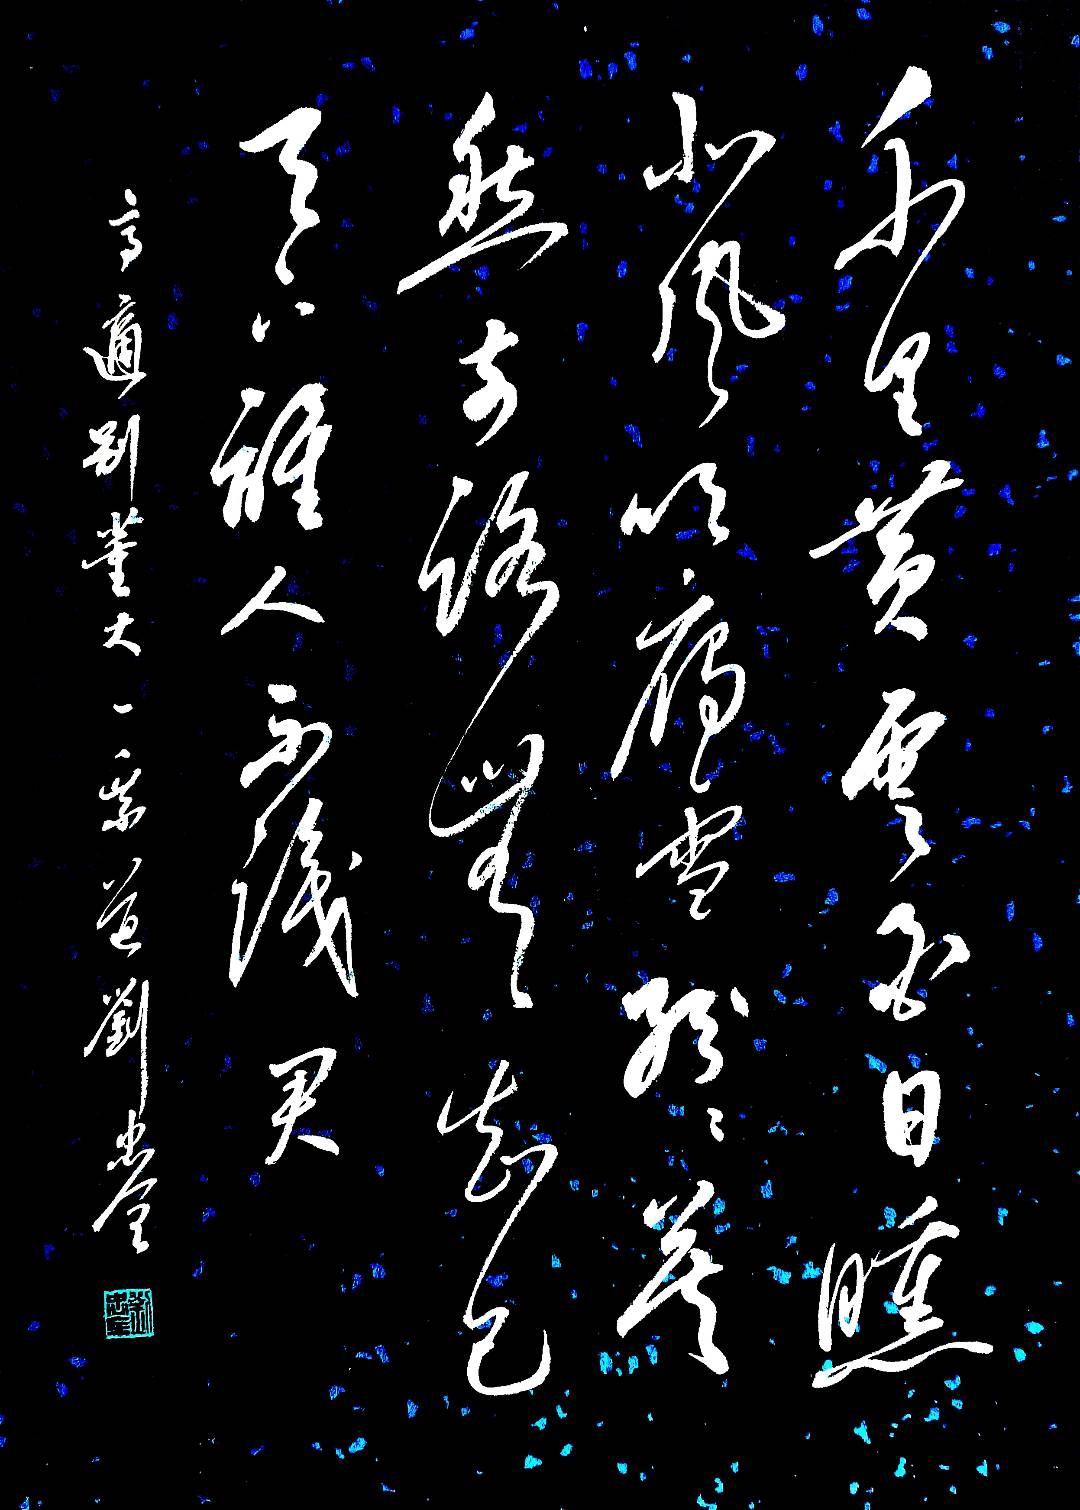 千里黃雲白日曛
北風吹鴈雪紛々莫
愁前路無知己
天下誰人不識君
高適別董大一 劉忠全